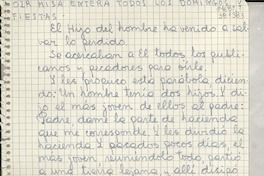 OIR MISA ENTERA TODOS LOS DOMINGOS
FIESTAS
El Hijo del hombre ha venido a sal
var lo perdido.
Se acercaban a El todos los publi
canos y pecadores para oirle.
Y les propuso esta parábola dicien
do: Un hombre tenía dos hijos. Y di
jo el mas joven de ellos al padre:
Padre dame la parte de hacienda
que me corresponde. Y les dividio la
hacienda Y pasados pocos dias, el
mas joven reuniendolo todo, partio
a una tierra lejana y allí disipó